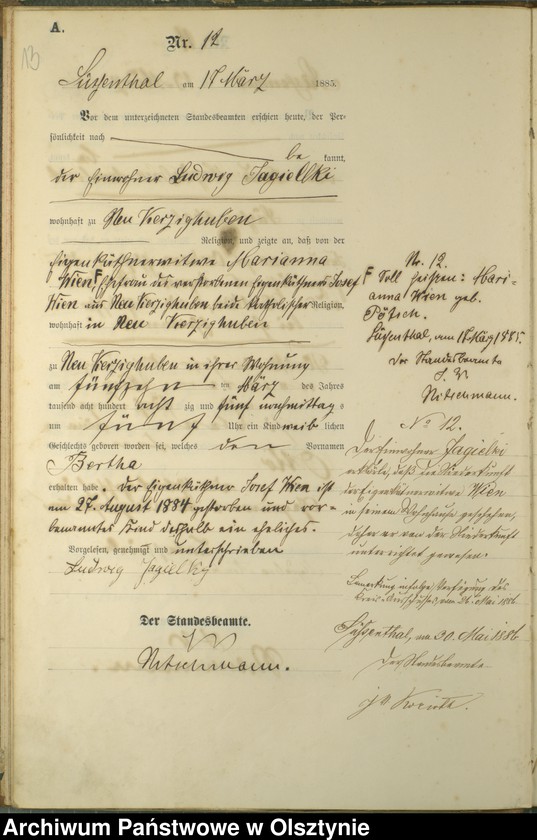 A.
13
Nr. 12
Süssenthal am 17 März 1885.
Vor dem unterzeichneten Standesbeamten erschien heute, der Per-
sönlichkeit nach
be kannt,
der Einwohner Ludwig Jagielski
wohnhaft zu Neu Vierzighuben
Religion, und zeigte an, daß von der
Eigenkäthnerwitwe Marianna
Wien, F Ehefrau des verstorbenen Eigenkäthners Josef
Wien aus Neu Vierzighuben beide katholischer Religion,
wohnhaft in Neu Vierzighuben
zu Neu Vierzighuben in ihrer Wohnung
am fünfzehn ten März des Jahres
tausend acht hundert acht zig und fünf nachmittag s
um fünf Uhr ein Kind weib lichen
Geschlechts geboren worden sei, welches den Vornamen
Bertha
erhalten habe. Der Eigenkäthner Josef Wien ist
am 27. August 1884 gestorben und vor-
benanntes Kind deshalb ein eheliches.
Vorgelesen, genehmigt und unterschrieben
Ludwig Jagielsky
Der Standesbeamte.
Nitschmann.
Nr. 12.
F Soll heißen: Mari-
anna Wien geb.
Pötsch.
Süssenthal, am 17 März 1885.
Der Standesbeamte
Nitschmann.
No 12.
Der Einwohner Jagielski
erklärt, daß die Niederkunft
der Eigenkäthnerwitwe Wien
in seinem Wohnhause geschehen,
daher er von der Niederkunft
unterrichtet gewesen.
Bemerkung infolge Verfügung des
Kreis-Ausschusses, vom 26. Mai 1886
Süssenthal, am 30. Mai 1886
Der Standesbeamte
Archiwum Państwowe w Olsztynie